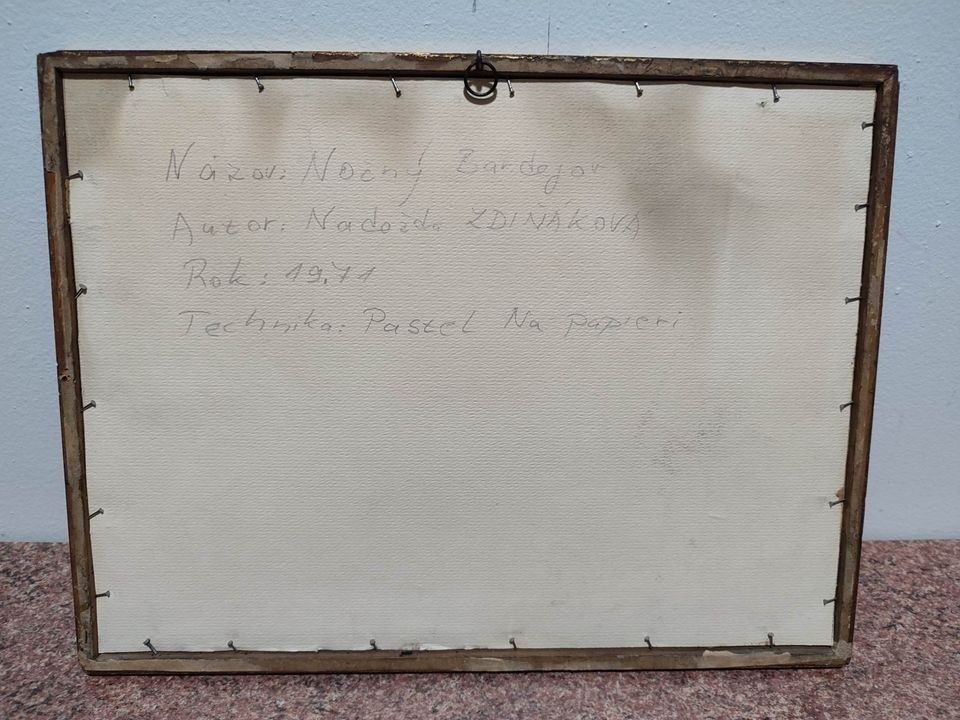 Názov: Nočný Bardejov
Autor: Nadežda ZDIŇÁKOVÁ
Rok: 1971
Technika: Pastel Na papieri